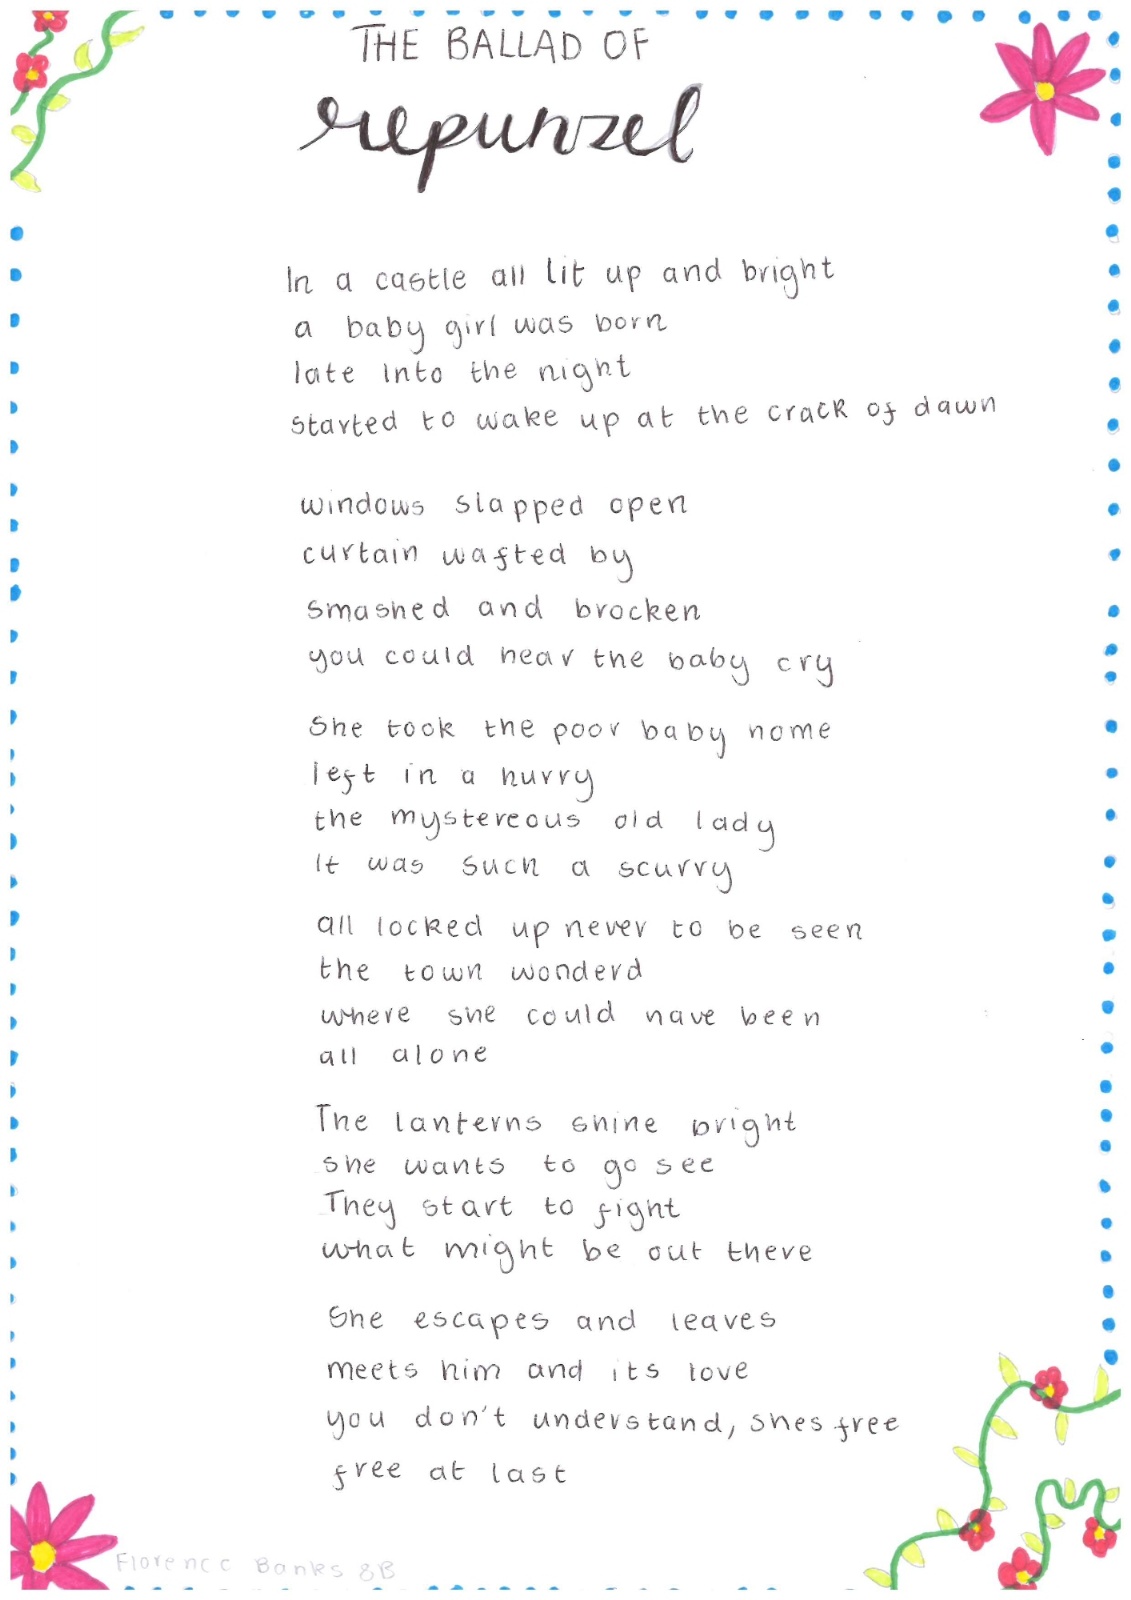 THE BALLAD OF
repunzel
In a castle all lit up and bright
a baby girl was born
late into the night
started to wake up at the crack of dawn
windows slapped open
curtain wafted by
smashed and brocken
you could hear the baby cry
She took the poor baby home
left in a hurry
the mystereous old lady
It was such a scurry
all locked up never to be seen
the town wonderd
where she could have been
all alone
The lanterns shine bright
she wants to go see
They start to fight
what might be out there
She escapes and leaves
meets him and its love
you don't understand, shes free
free at last
Florence Banks 8B